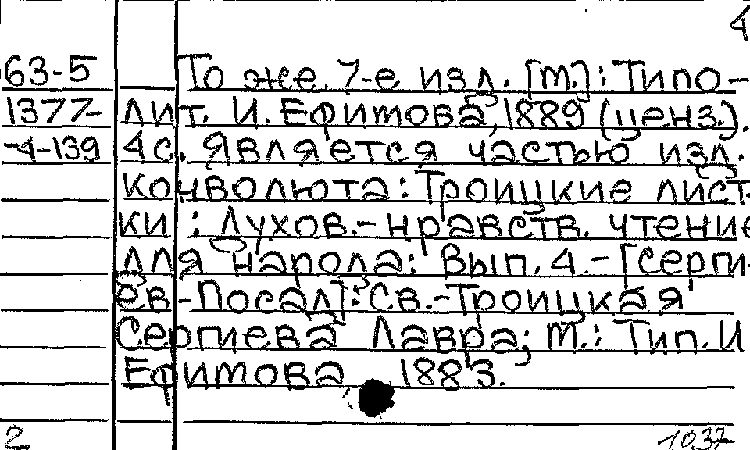 4
63-5 То же. 7-е изд. [М.]: Типо-
1377- лит. И. Ефимова, 1889 (ценз.).
-4-139 4 с. Является частью изд.
конволюта: Троицкие лист-
ки : Духов.-нравств. чтение
для народа: Вып. 4. - [Серги-
ев-Посад]: Св.-Троицкая
Сергиева Лавра; М.: Тип. И
Ефимова 1883.
2 1037